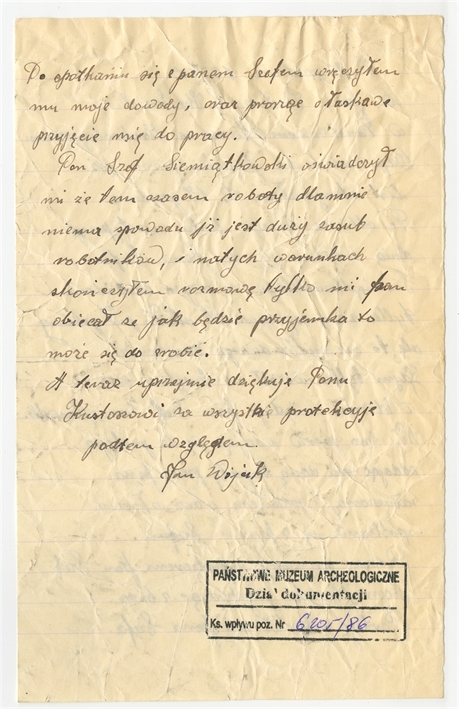 Po spotkaniu się z panem Szefem wręczyłem
mu moje dowody, oraz prorzę o łaskawe
przyjęcie mię do pracy.
Pan Szef Siemiątkowski oświadczył
mi że tem czasem roboty dlamnie
niema spowodu jż jest duży zasub
robotników, i natych warunkach
skończyłem rozmowę tylko mi pan
obiecał że jak będzie przyjemka to
może się da zrobić.
A teraz uprzejmie dziękuję Panu
Kustoszowi za wszystkie protekcyję
podtem względem.
Jan Wójcik
PAŃSTWOWE MUZEUM ARCHEOLOGICZNE
Dział dokumentacji
Ks. wpływu poz. Nr 6205/86